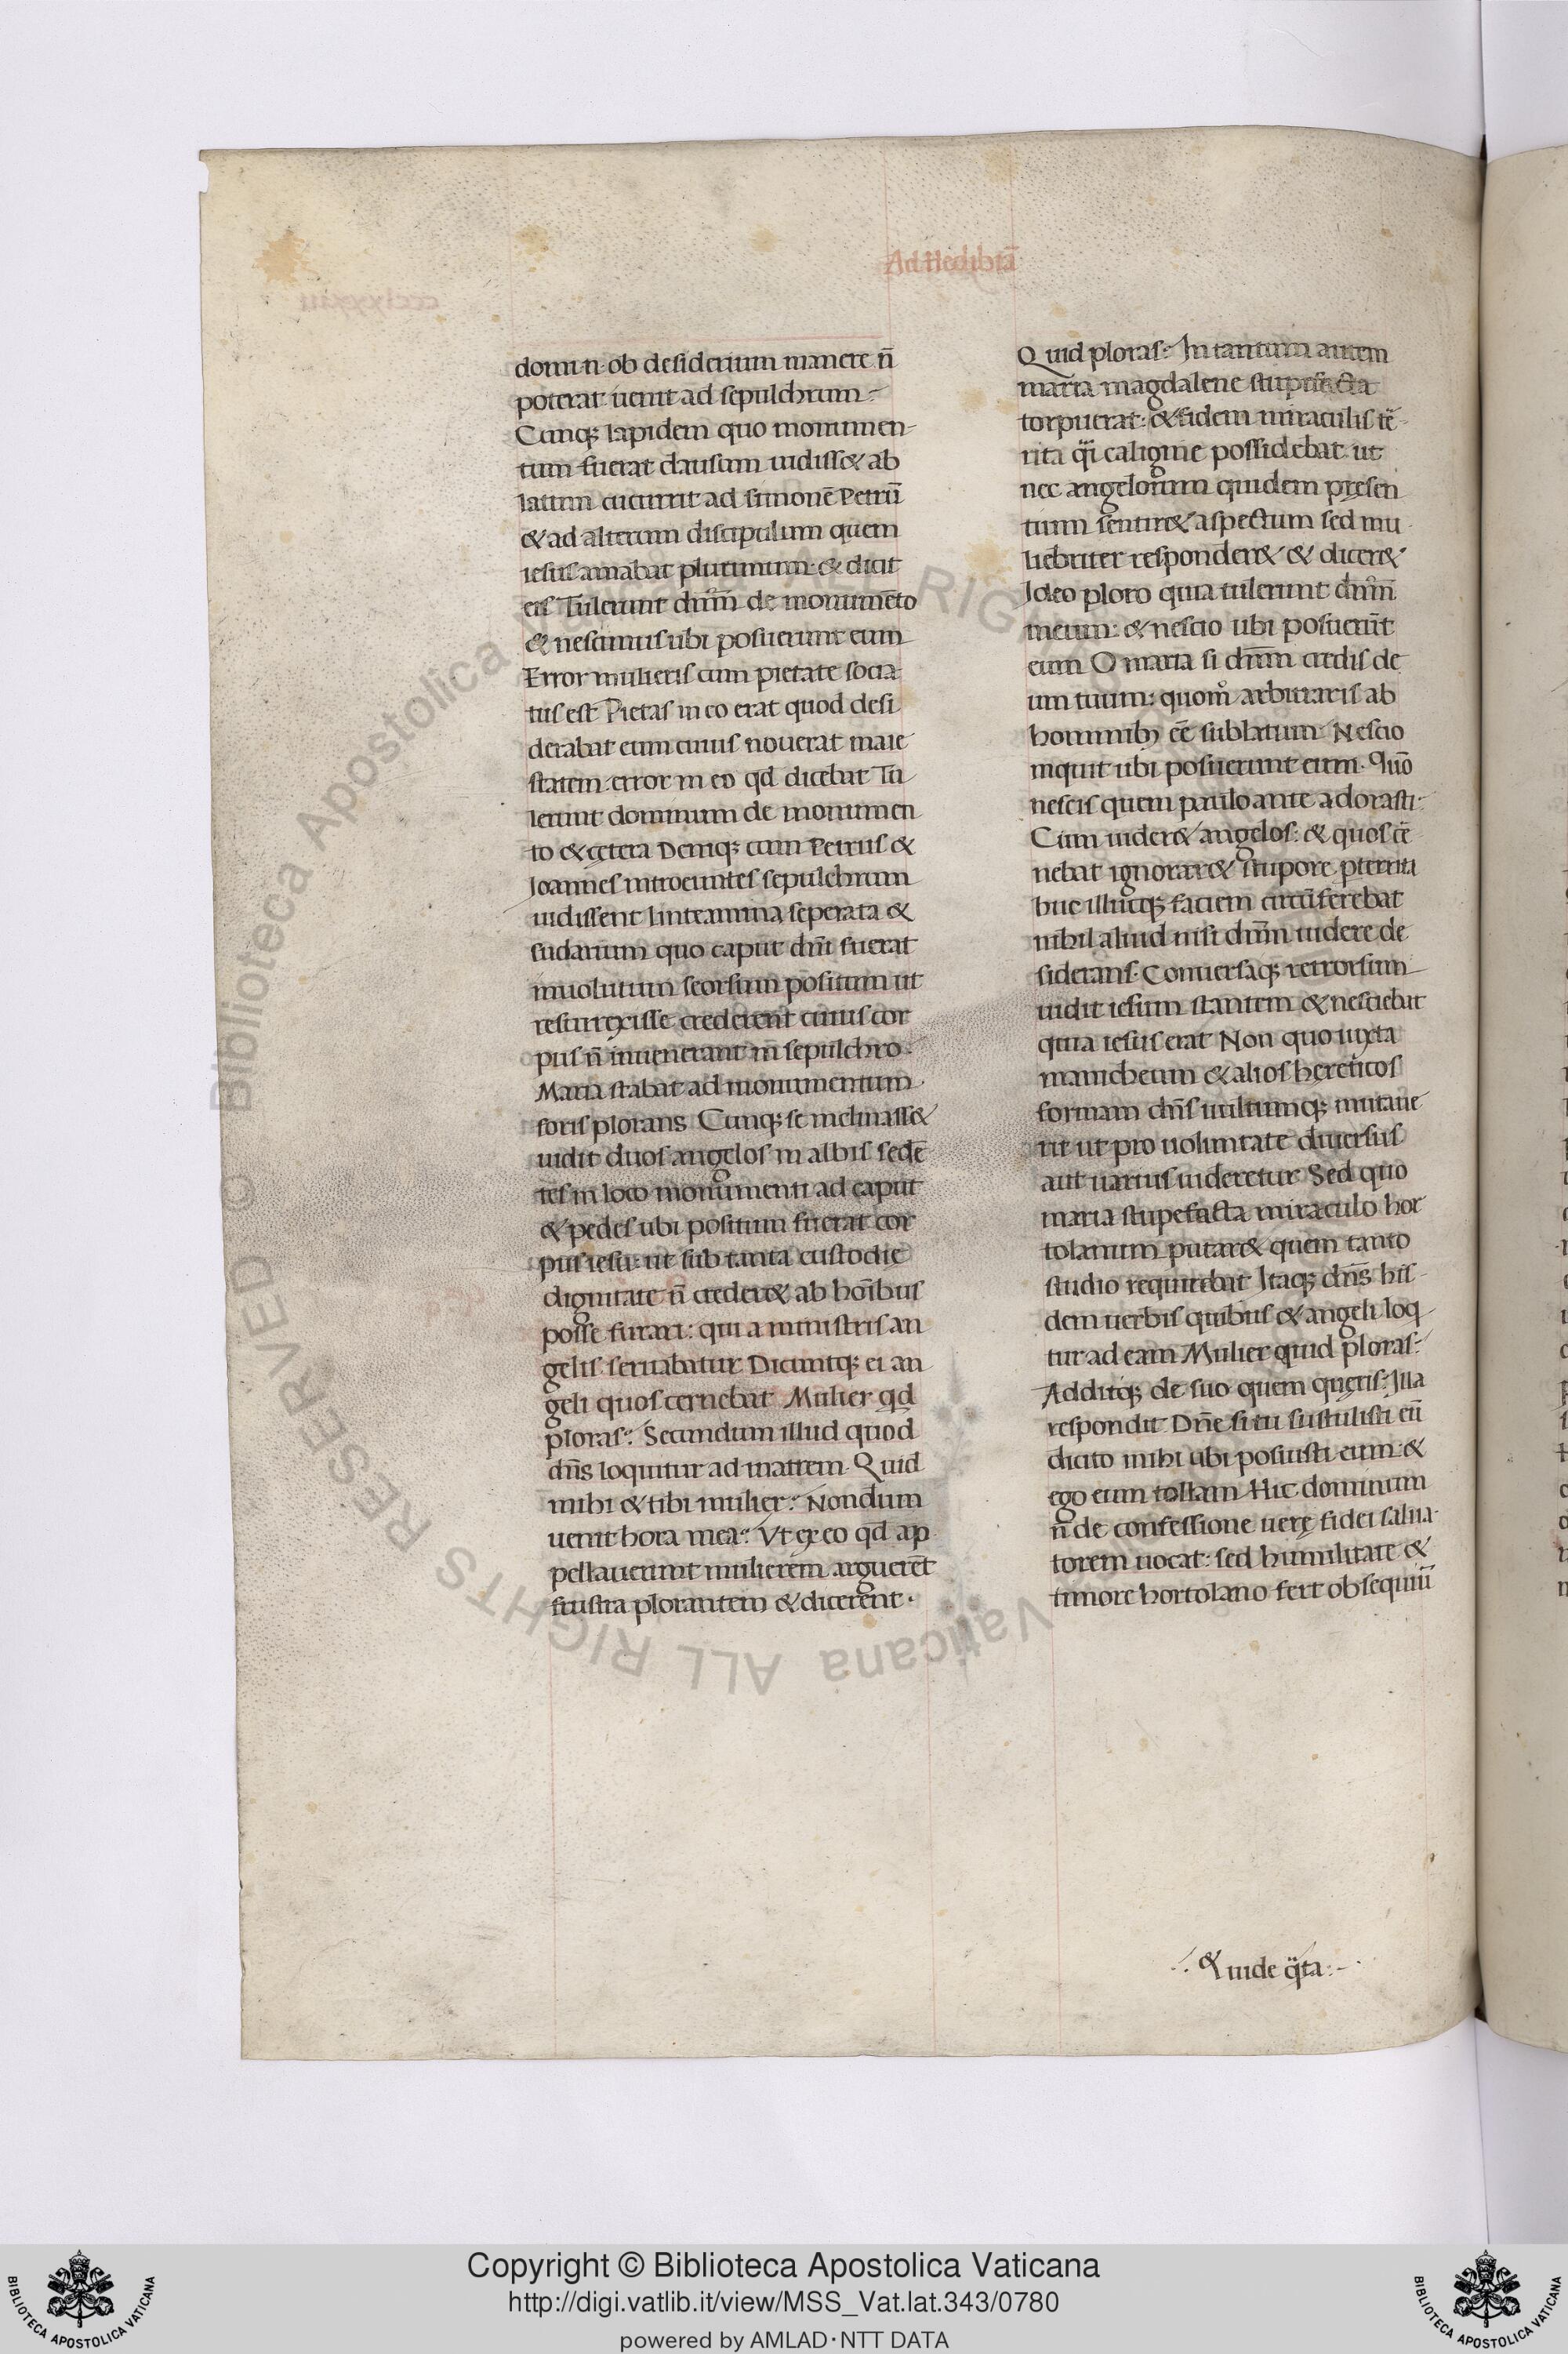 Ad Hedibiā
domi n̄ ob desiderium manere n̄
poterat uenit ad sepulchrum
Cunq; lapidem quo monumen-
tum fuerat clausum uidiss& ab
latum cucurrit ad simonē Petrū
& ad alterum discipulum quem
iesus amabat plurimum: & dicit
eis Tulerunt dnm̄ de monumēto
& nescimus ubi posuerunt eum
Error mulieris cum pietate socia
tus est Pietas in eo erat quod desi
derabat eum cuius nouerat maie
statem: error in eo qd dicebat Tu
lerunt dominum de monumen
to & cętera Deniq; cum Petrus &
Joannes introeuntes sepulchrum
uidissent linteamina seperata &
sudarium quo caput dn̄i fuerat
inuolutum seorsum positum ut
resurrexisse crederent cuius cor
pus n̄ inuenerant in sepulchro.
Maria stabat ad monumentum
foris plorans Cunq; se inclinass&
uidit duos angelos in albis sedē
tes in loco monumenti ad caput
& pedes ubi positum fuerat cor
pus iesu: ut sub tanta custodię
dignitate n̄ creder& ab hoībus
posse furari: qui a ministris an
gelis seruabatur Dicuntq; ei an
geli quos cernebat Mulier qd
ploras: Secundum illud quod
dn̄s loquitur ad matrem. Quid
mihi & tibi mulier: Nondum
uenit hora mea: Vt ex eo qd ap
pellauerunt mulierem arguerēt
frustra plorantem & dicerent.
Quid ploras: In tantum autem
maria magdalene stupefacta
torpuerat: & fidem miraculis tē-
rita q̈i caligine possidebat ut
nec angelorum quidem pręsen
tium sentir& aspectum sed mu
liebriter responder& & dicer&
Ideo ploro quia tulerunt dnm̄
meum: & nescio ubi posuerūt
eum O maria si dnm̄ credis de
um tuum: quom̊ arbitraris ab
hominibꝫ eē sublatum Nescio
inquit ubi posuerunt eum. Quō
nescis quem paulo ante adorasti:
Cum uider& angelos: & quos cē
nebat ignorar& stupore pterrita
huc illucq; faciem circūferebat
nihil aliud nisi dnm̄ uidere de
siderans. Conuersaq; retrorsum
uidit iesum stantem & nesciebat
quia iesus erat Non quo iuxta
manicheum & alios hęreticos
formam dn̄s uultumq; mutaue
rit ut pro uoluntate diuersus
aut uarius uideretur Sed quo
maria stupefacta miraculo hor
tolanum putar& quem tanto
studio requirebat Itaq; dn̄s his-
dem uerbis quibus & angeli loq
tur ad eam Mulier quid ploras:
Additq; de suo quem quęris: Illa
respondit Dn̄e si tu sustulisti eū
dicito mihi ubi posuisti eum: &
ego eum tollam Hic dominum
n̄ de confessione uerę fidei salua-
torem uocat: sed humilitate &
timore hortolano fert obsequiū
& uide q̈ta:-
Biblioteca Apostolica Vaticana ALL RIGHTS RESERVED ©
Copyright © Biblioteca Apostolica Vaticana
http://digi.vatlib.it/view/MSS_Vat.lat.343/0780
powered by AMLAD·NTT DATA
BIBLIOTECA APOSTOLICA VATICANA
BIBLIOTECA APOSTOLICA VATICANA